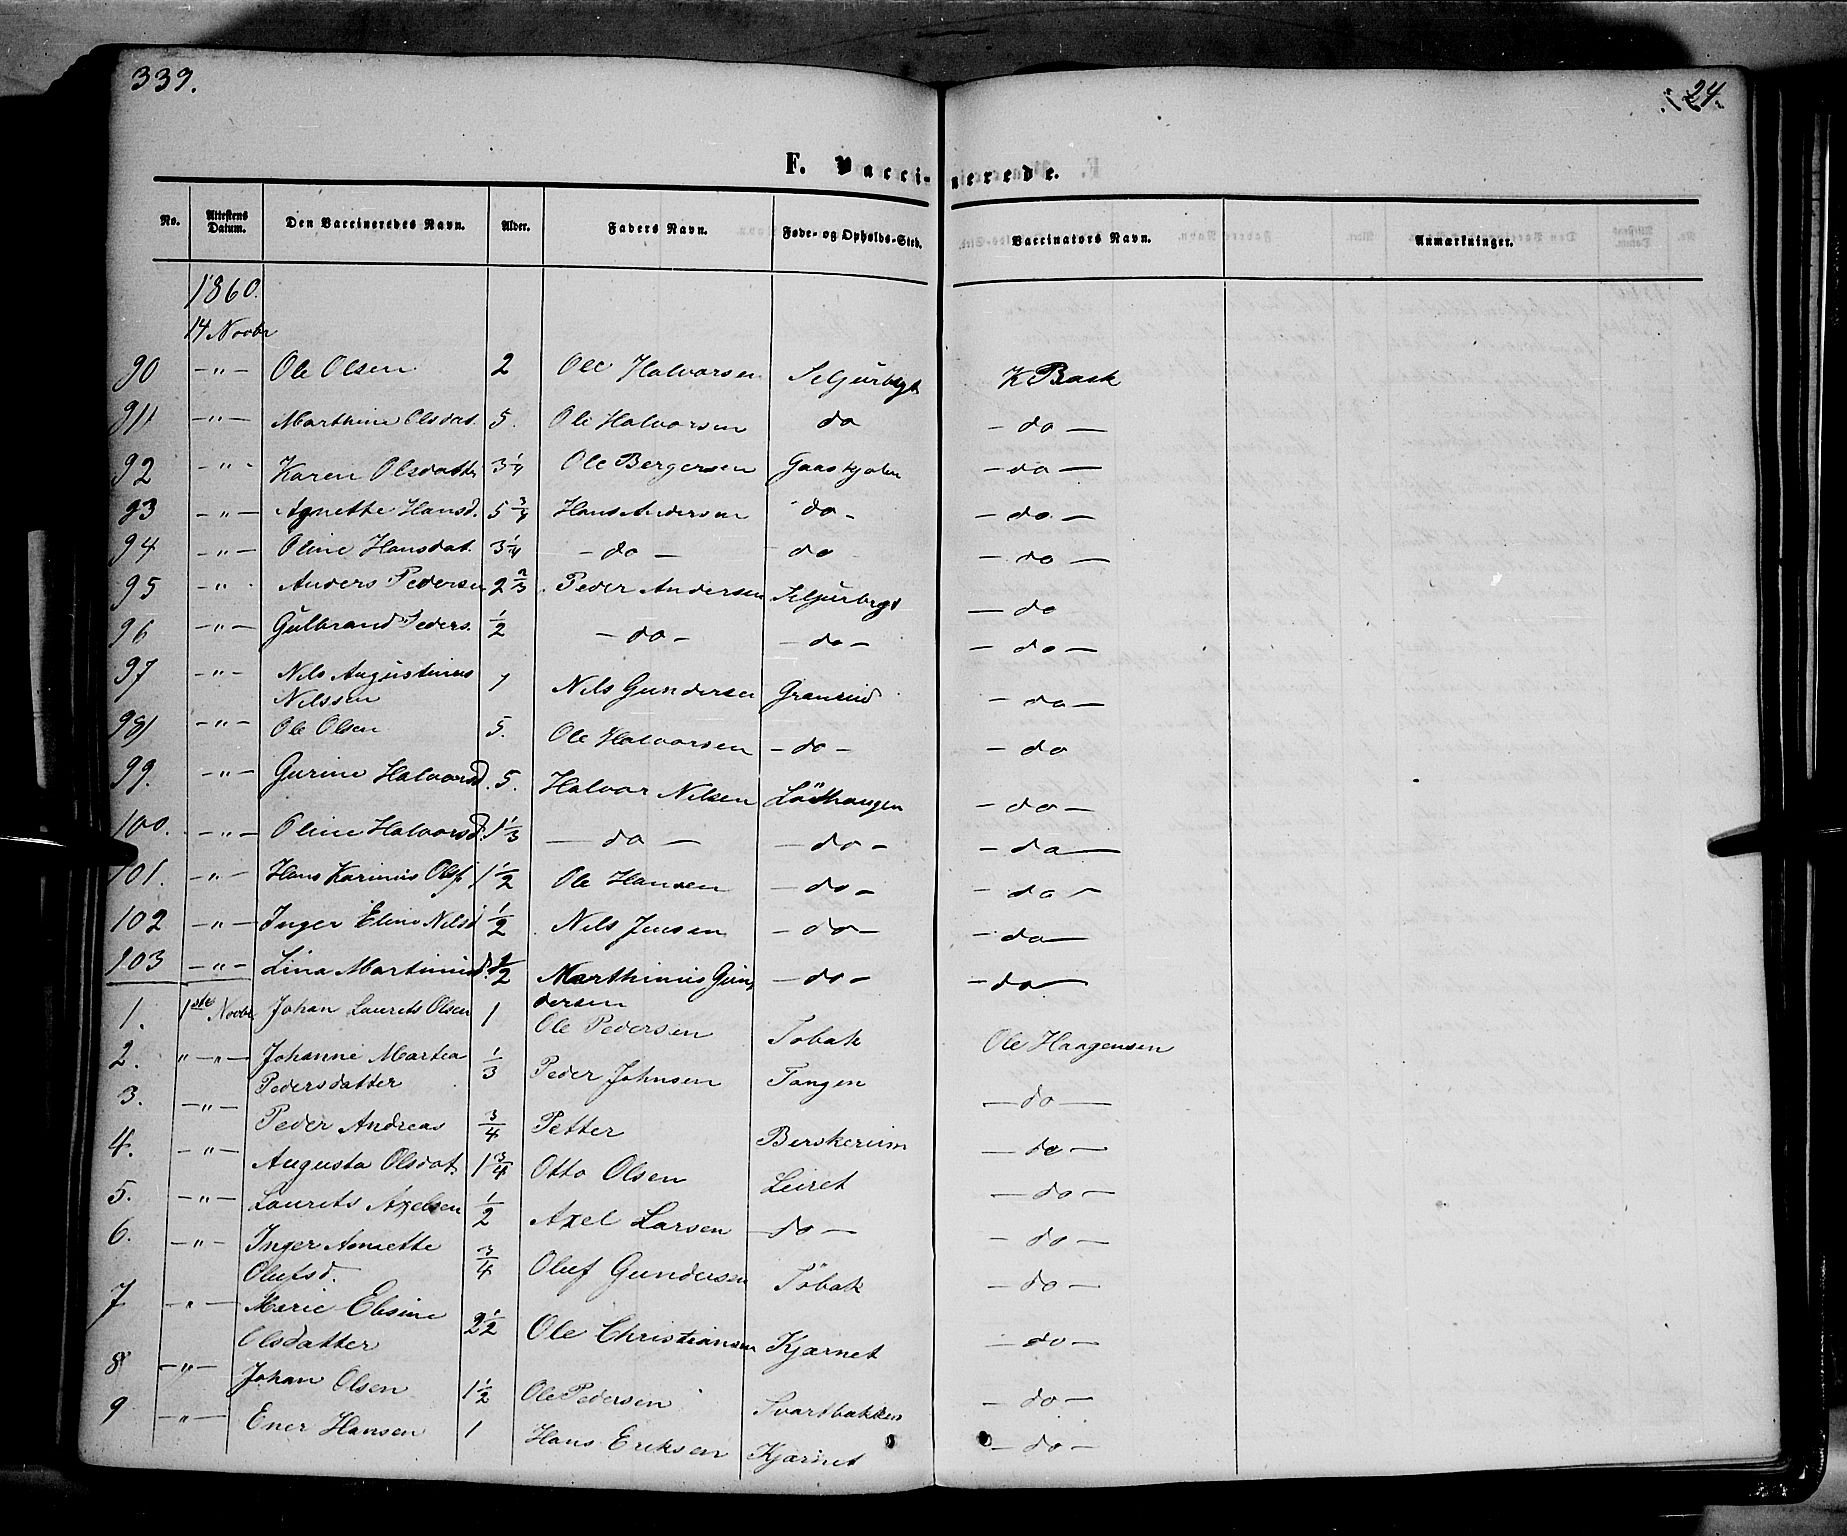 339.
24.
F. Vaccinerede.
No. Attestens Datum. Den Vaccineredes Navn. Alder. Faders Navn. Føde- og Opholds-Sted. Vaccinators Navn. Anmærkninger.
1860.
14 Novbr
90 -"- Ole Olsen 2 Ole Halvorsen K Bask
91 -"- Marthine Olsdat. 5. Ole Halvorsen do - do -
92 -"- Karen Olsdatter 3¼ Ole Bergersen - do -
93 -"- Agnette Hansd. 5¾ Hans Andersen do - - do -
94 -"- Oline Hansdat. 3¼ - do - - do - do -
95 -"- Anders Pedersen 2⅔ Peder Andersen - do
96 -"- Gulbrand Peders. ½ - do - - do - - do -
97 -"- Nils Augustinus 1 Nils Gundersen Granrud - do -
Nilssen
98 -"- Ole Olsen 5. Ole Halvorsen - do - - do
99. -"- Gurine Halvorsd. 5. Halvor Nilsen - do -
100. -"- Oline Halvorsd. 1⅓ - do - - do - - do -
101. -"- Hans Karinius Olss. 1½ Ole Hansen - do - - do -
102 -"- Inger Eline Nilsd. ½ Nils Jensen - do - - do -
103 -"- Lina Martinusd. ½ Marthinus Gun- - do - - do -
dersen
1. 1ste Novbr Johan Laurets Olsen 1 Ole Pedersen Tobak Ole Haagensen
2. "-"- Johanne Martea ⅓ Peder Johnsen Tangen - do -
Pedersdatter
3. -"- Peder Andreas ¾ Petter Berskerium - do -
4. -"- Augusta Olsdat. 1¾ Otto Olsen Leiret - do -
5. -"- Laurits Axelsen ½ Axel Larsen - do - - do -
6. -"- Inger Annette ¾ Oluf Gundersen Tobak - do -
Olufsd.
7 -"- Marie Elisine 2½ Ole Christiansen Kjærnet - do -
Olsdatter
8 -"- Johan Olsen 1½ Ole Pedersen Svartbakken - do -
9 -"- Ener Hansen 1 Hans Eriksen Kjærnet - do -